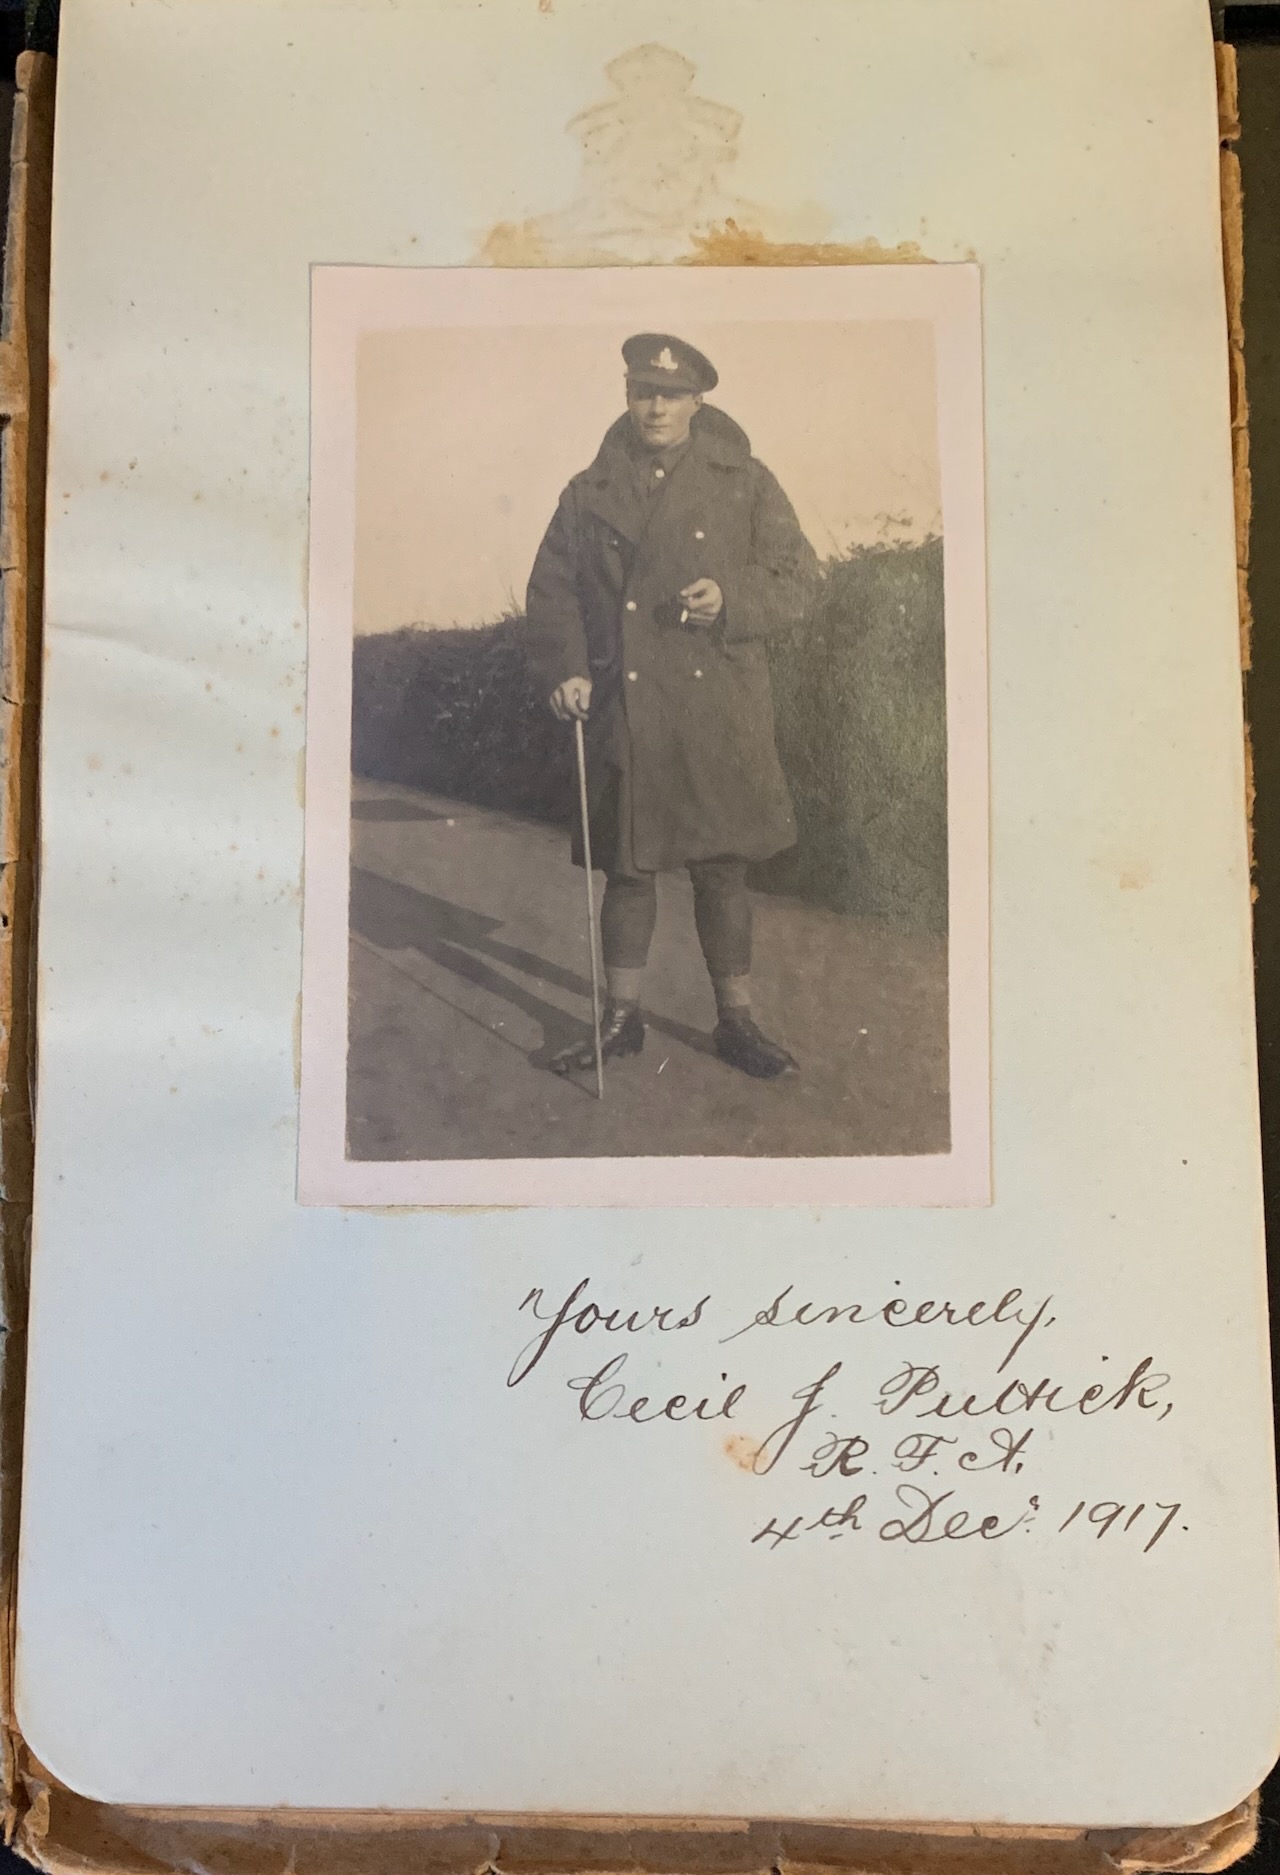 Yours sincerely,
Cecil J. Puttick,
R. F. A.
4th Decr. 1917.